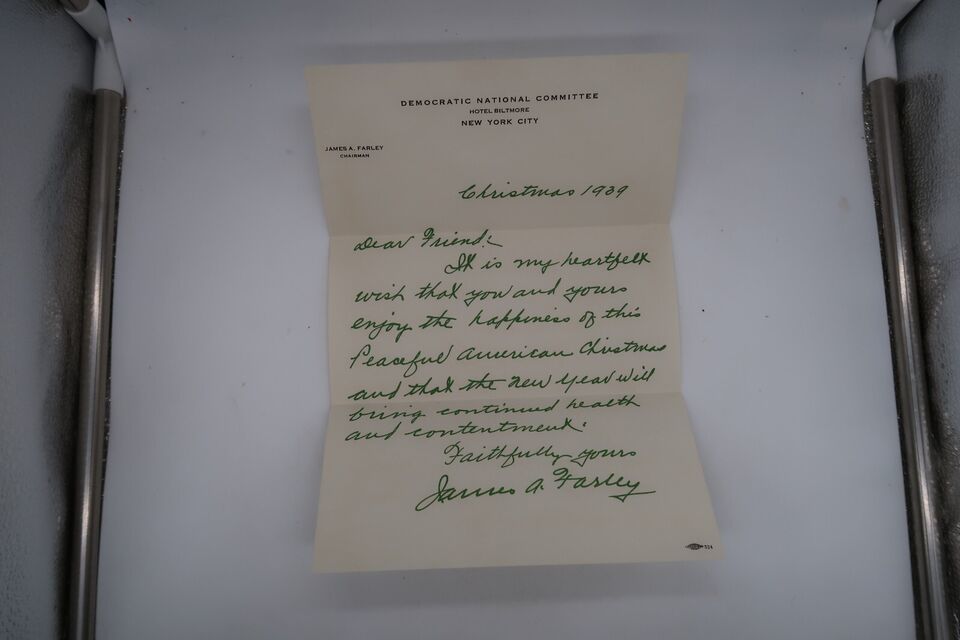 DEMOCRATIC NATIONAL COMMITTEE
HOTEL BILTMORE
NEW YORK CITY
JAMES A. FARLEY
CHAIRMAN
Christmas 1939
Dear Friend:
It is my heartfelt
wish that you and yours
enjoy the happiness of this
Peaceful American Christmas
and that the New Year will
bring continued health
and contentment.
Faithfully yours
James A. Farley
324